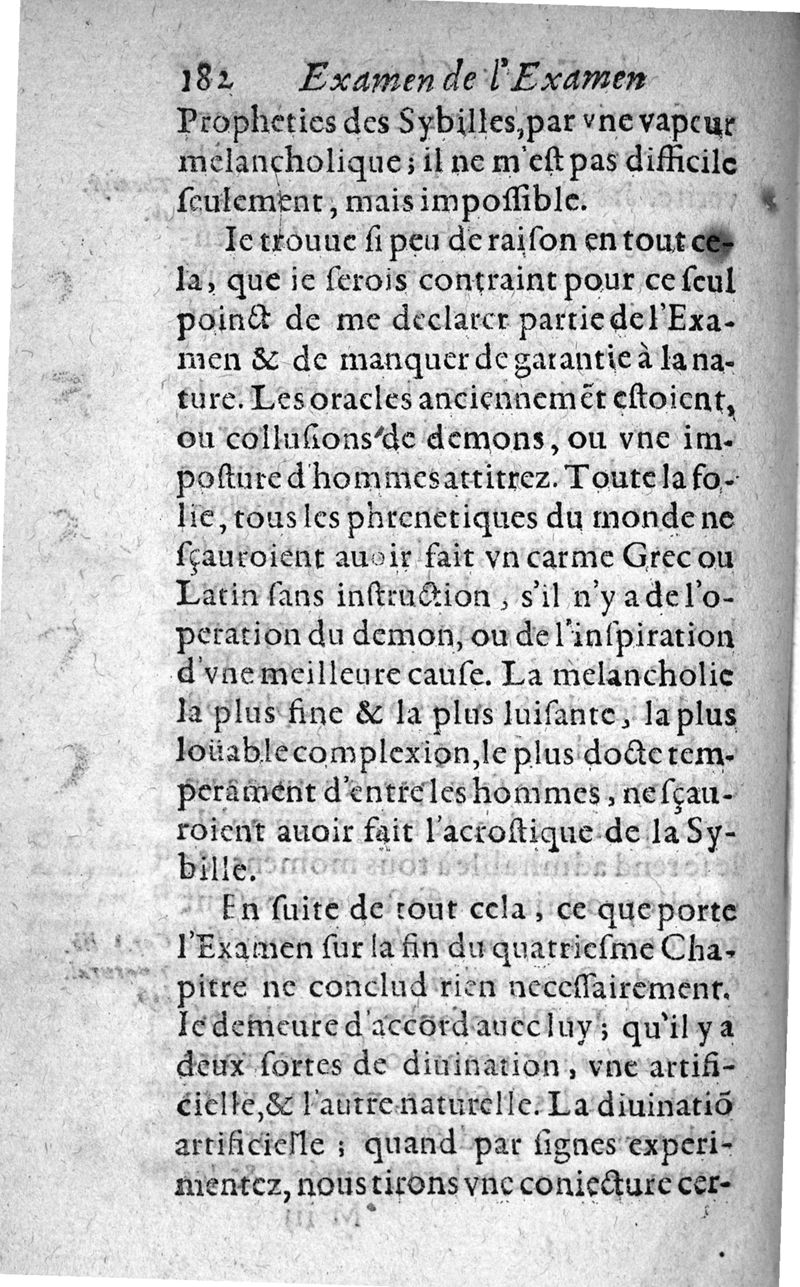 182 Examen de l'Examen
Propheties des Sybilles, par vne vapeur
melancholique; il ne m'eſt pas difficile
ſeulement, mais impoſſible.
Ie trouue ſi peu de raiſon en tout ce-
la, que ie ſerois contraint pour ce ſeul
poinct de me declarer partie de l'Exa-
men & de manquer de garantie à la na-
ture. Les oracles anciennemẽt eſtoient,
ou colluſions de demons, ou vne im-
poſture d'hommes attitrez. Toute la fo-
lie, tous les phrenetiques du monde ne
ſçauroient auoir fait vn carme Grec ou
Latin ſans inſtruction, s'il n'y a de l'o-
peration du demon, ou de l'inſpiration
d'vne meilleure cauſe. La melancholie
la plus fine & la plus luiſante, la plus
loüable complexion, le plus docte tem-
perament d'entre les hommes, ne ſçau-
roient auoir fait l'acroſtique de la Sy-
bille.
En ſuite de tout cela, ce que porte
l'Examen ſur la fin du quatrieſme Cha-
pitre ne conclud rien neceſſairement.
Ie demeure d'accord auec luy; qu'il y a
deux ſortes de diuination, vne artifi-
cielle, & l'autre naturelle. La diuinatiõ
artificielle; quand par ſignes experi-
mentez, nous tirons vne coniecture cer-